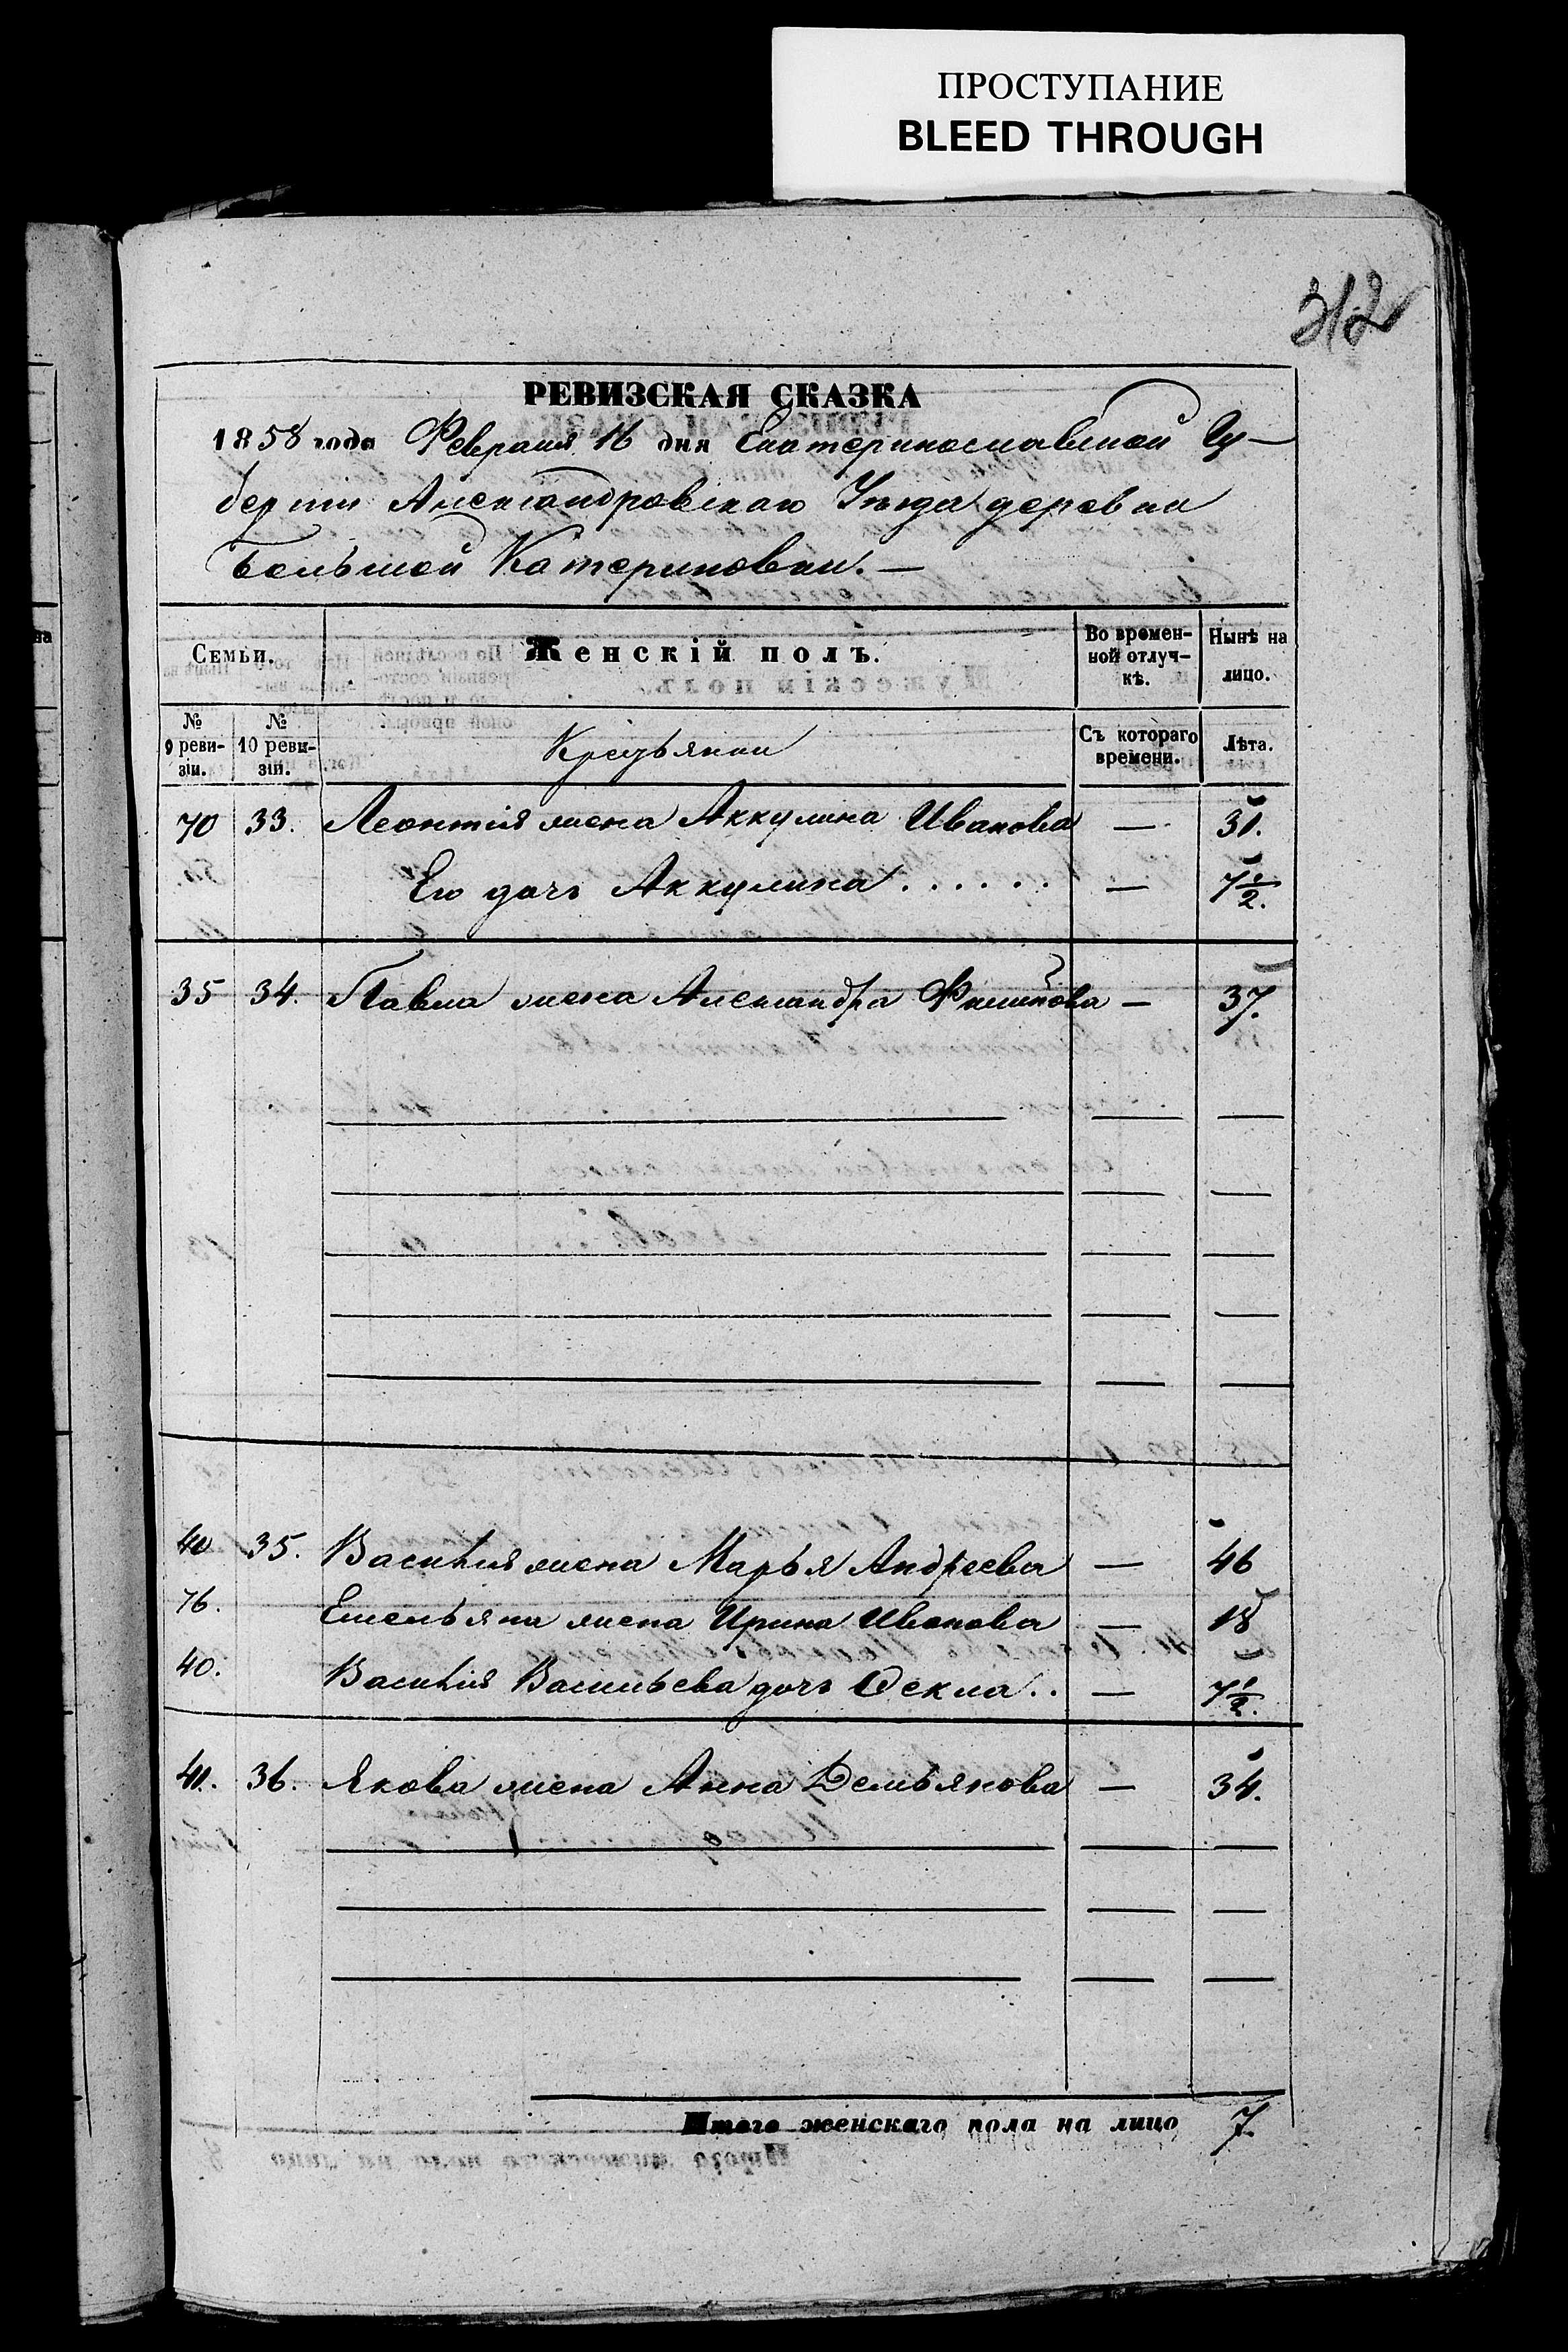 ПРОСТУПАНИЕ
BLEED THROUGH
312
РЕВИЗСКАЯ СКАЗКА
1858 года Февраля 16 дня Екатеринославской Гу-
берніи Александровскаго Уѣзда деревни
Большой Катериновки. —
Семьи. Женскій полъ. Во времен-ной отлуч-кѣ. Нынѣ на лицо.
№ 9 реви-зіи. № 10 реви-зіи. Крестьянки Съ котораго времени. Лѣта.
70 33. Леонтія жена Аккулина Иванова — 31.
Его дочь Аккулина . . . . . . — 7 1/2.
35 34. Павла жена Александра Филипова — 37.
40 35. Василія жена Марья Андреева — 46
76. Емельяна жена Ирина Иванова — 18
40. Василія Васильева дочь Ѳекла . . — 7 1/2.
41. 36. Якова жена Анна Демьянова — 34.
Итого женскаго пола на лицо 7.